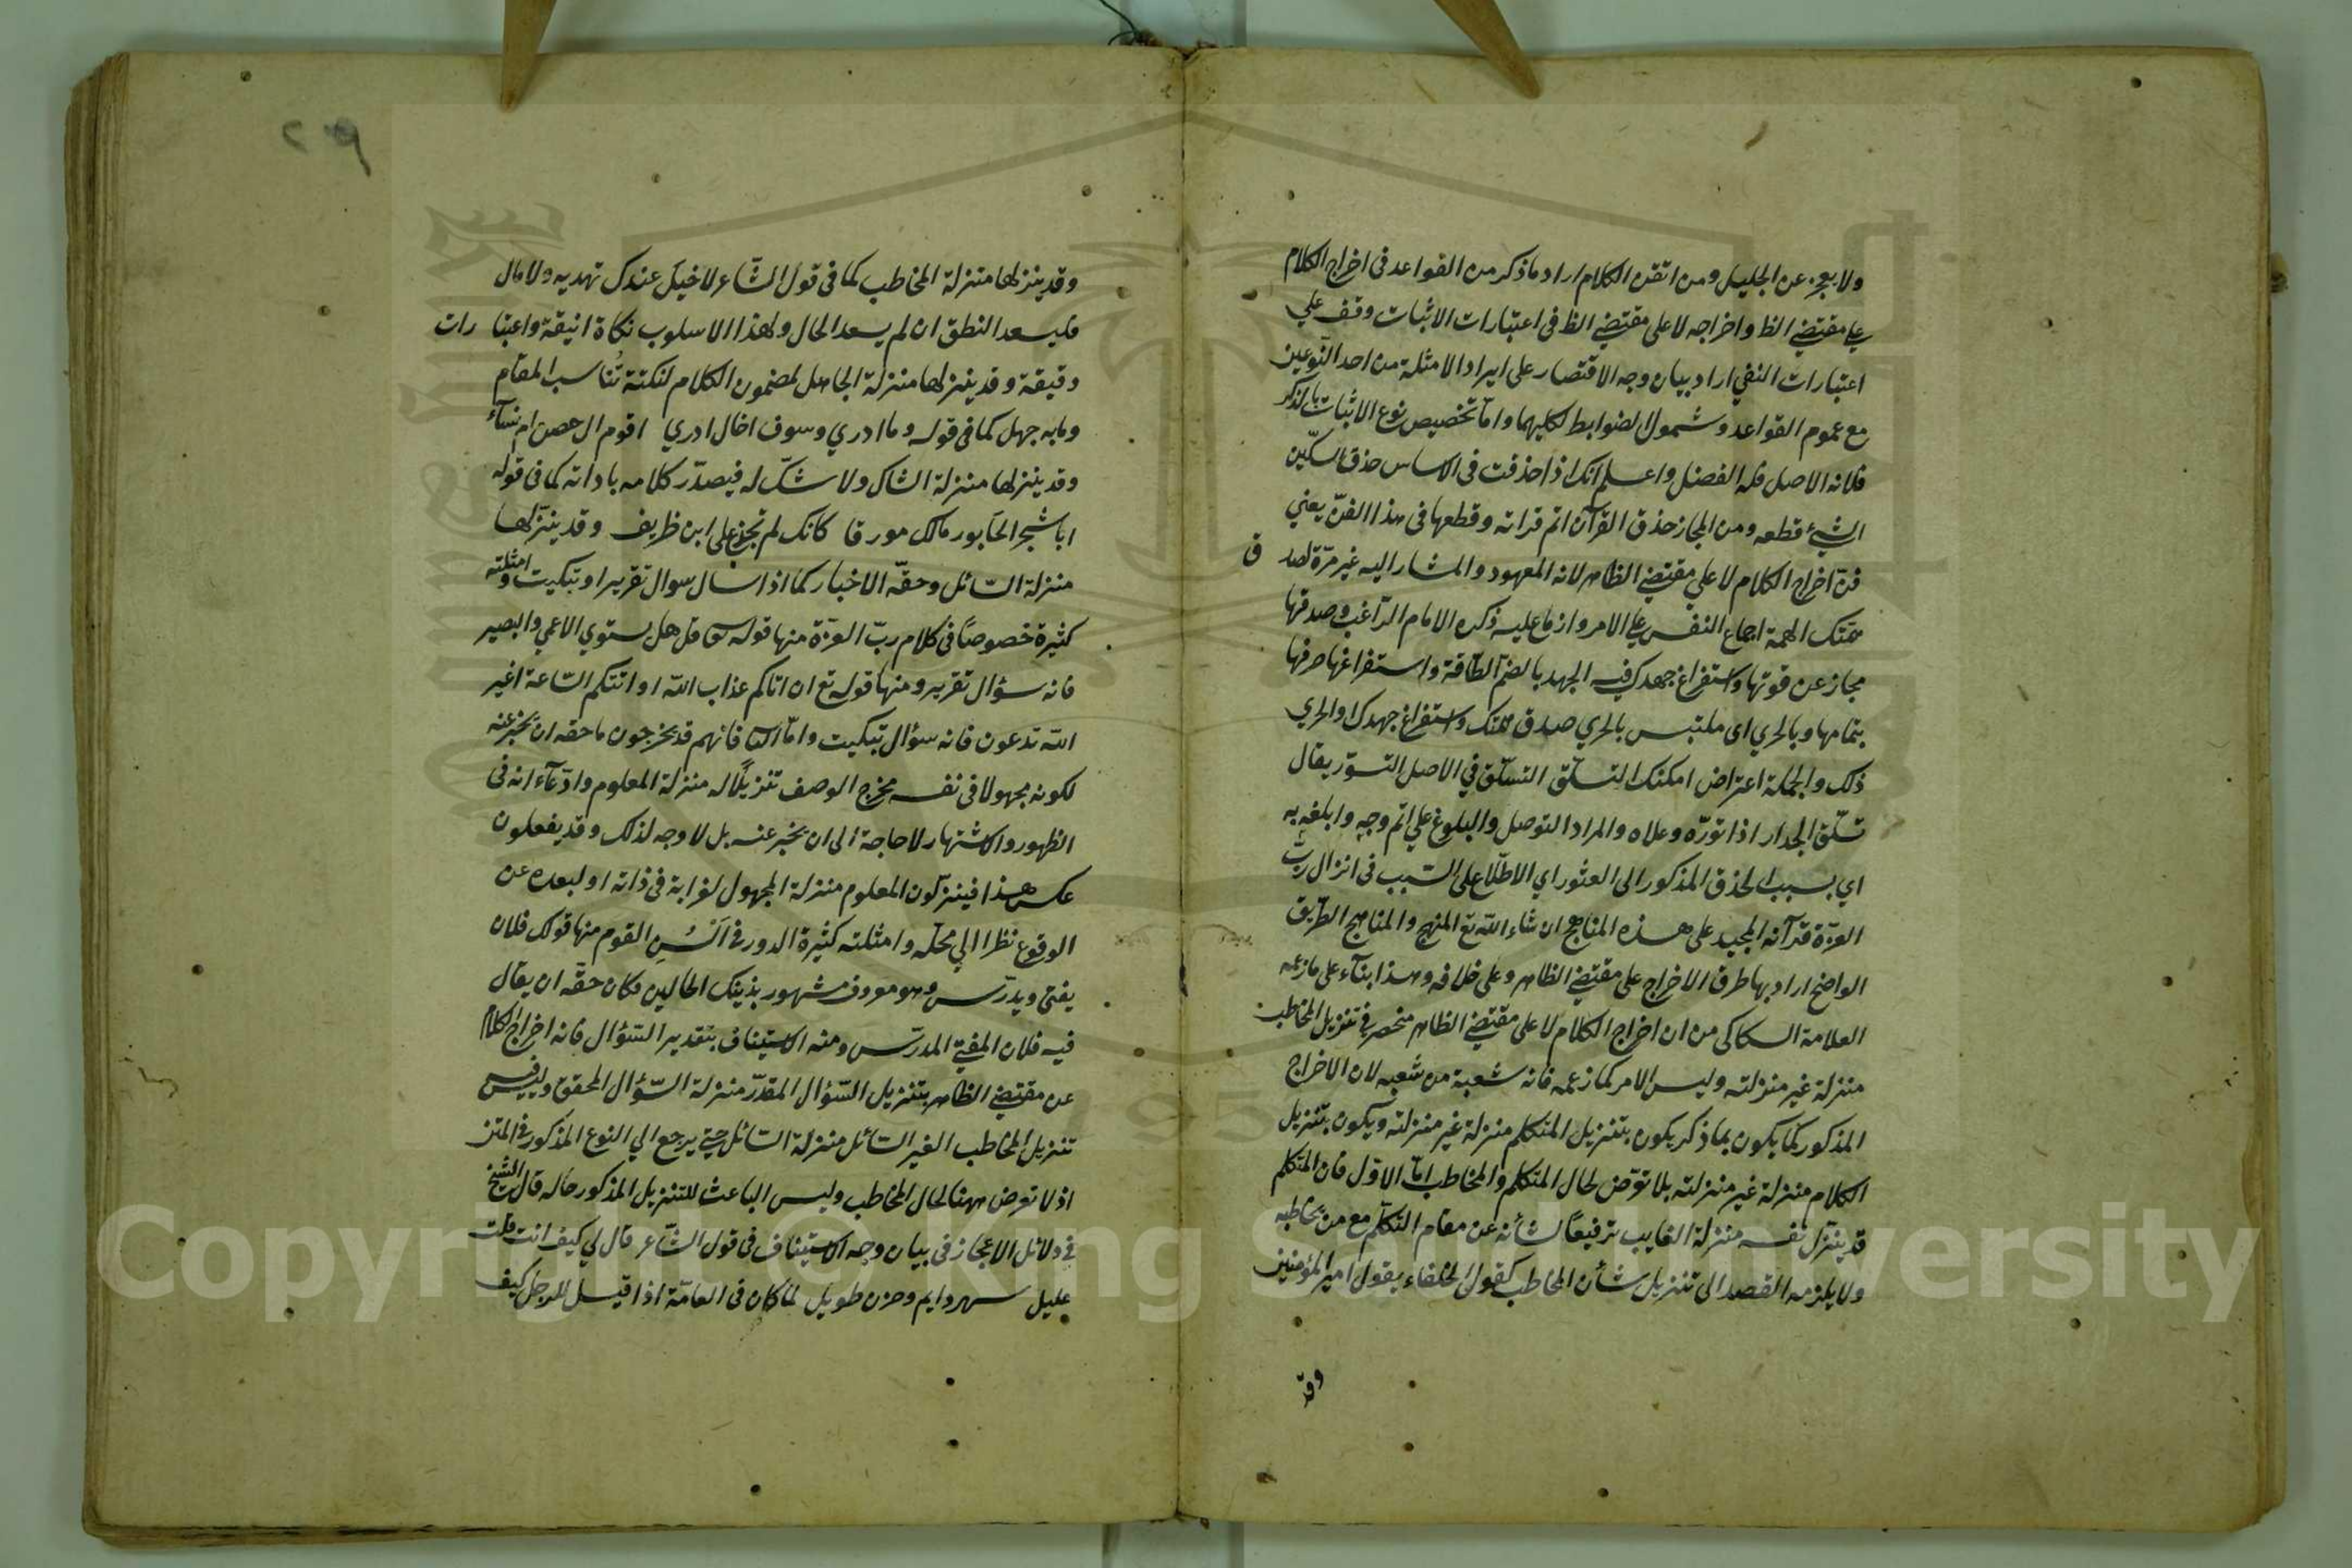 ولا يعجز عن الجليل ومن اتقن الكلام اراد ما ذكر من القواعد في اخراج الكلام
علي مقتضي الظ واخراجه لا على مقتضي الظ في اعتبارات الاثبات وقف علي
اعتبارات النفي اراد بيان وجه الاقتصار على ايراد الامثلة من احد النوعين
مع عموم القواعد وشمول الضوابط لكليهما واما تخصيص نوع الاثبات بالذكر
فلانه الاصل فله الفضل واعلم انك اذا حذقت في الاساس حذق السكين
الشئ قطعه ومن المجاز حذق القرآن اتم قراته وقطعها في هذا الفن يعني
فن اخراج الكلام لا علي مقتضي الظاهر لانه المعهود والمشار اليه غير مرة لصدق
همتك الهمة اجماع النفس علي الامر وازماع عليه ذكره الامام الراغب وصدقها
مجاز عن قوتها واستفراغ جهدك فيه الجهد بالضم الطاقة واستفراغها صرفها
بتمامها وبالحري اى ملتبس بالحري صدق همتك واستفراغ جهدك والحري
ذلك والجملة اعتراض امكنك التسلق التسلق في الاصل التسور يقال
تسلق الجدار اذا تورّه وعلاه والمراد التوصل والبلوغ علي اتم وجه وابلغه به
اي بسبب الحذق المذكور الى العثور اي الاطلاع على السبب في انزال رب
العزة قرآنه المجيد على هذه المناهج ان شاء الله تع المنهج والمناهج الطريق
الواضح اراد بها طرق الاخراج على مقتضي الظاهر وعلى خلافه وهذا بناء على ما زعمه
العلامة السكاكى من ان اخراج الكلام لا على مقتضي الظاهر منحصر في تنزيل المخاطب
منزلة غير منزلته وليس الامر كما زعمه فانه شعبة من شعبه لان الاخراج
المذكور كما يكون بما ذكر يكون بتنزيل المتكلم منزلة غير منزلته ويكون بتنزيل
الكلام منزلة غير منزلته بلا تعرض لحال المتكلم والمخاطب اما الاول فان المتكلم
قد ينزل نفسه منزلة الغايب ترفيعا لشأنه عن مقام التكلم مع من يخاطبه
ولا يلزمه القصد الى تنزيل شأن المخاطب كقول الخلفاء يقول امير المؤمنين
وقد
وقد ينزلها منزلة المخاطب كما في قول الشاعر لا خيل عندك تهديه ولا مال
فليسعد النطق ان لم يسعد الحال ولهذا الاسلوب نكاة انيقة واعتبارات
دقيقة وقد ينزلها منزلة الجاهل لمضمون الكلام لنكتة تناسب المقام
وما به جهل كما في قوله وما ادري وسوف اخال ادري اقوم ال حصن ام نسآء
وقد ينزلها منزلة الشاك ولا شك له فيصدر كلامه باداته كما في قوله
ايا شجر الخابور مالك مورقا كانك لم تجزع على ابن ظريف وقد ينزلها
منزلة السائل وحقه الاخبار كما اذا سال سوال تقرير او تبكيت وامثلته
كثيرة خصوصا في كلام رب العزة منها قوله قل هل يستوي الاعمي والبصير
فانه سؤال تقرير ومنها قوله تع ان اتاكم عذاب الله او اتتكم الساعة اغير
الله تدعون فانه سؤال تبكيت واما فانهم قد يخرجون ما حقه ان يخبر عنه
لكونه مجهولا في نفسه مخرج الوصف تنزيلا له منزلة المعلوم وادعآء انه في
الظهور والاشتهار لا حاجة الى ان يخبر عنه بل لا وجه لذلك وقد يفعلون
عكس هذا فينزلون المعلوم منزلة المجهول لغرابة في ذاته او لبعده عن
الوقوع نظرا الي محله وامثلته كثيرة الدور في السن القوم منها قولك فلان
يفتي ويدرس وهو معروف مشهور بذينك الحالين فكان حقه ان يقال
فيه فلان المفتي المدرس ومنه الاستيناف بتقدير السؤال فانه اخراج الكلام
عن مقتضي الظاهر بتنزيل السؤال المقدر منزلة السؤال المحقق وليس فيه
تنزيل المخاطب الغير السائل منزلة السائل حتي يرجع الي النوع المذكور في المتن
اذ لا تعرض ههنا لحال المخاطب وليس الباعث للتنزيل المذكور حاله قال الشيخ
في دلائل الاعجاز في بيان وجه الاستيناف في قول الشاعر قال لي كيف انت قلت
عليل سهر دايم وحزن طويل لما كان في العادة اذا قيل للرجل كيف